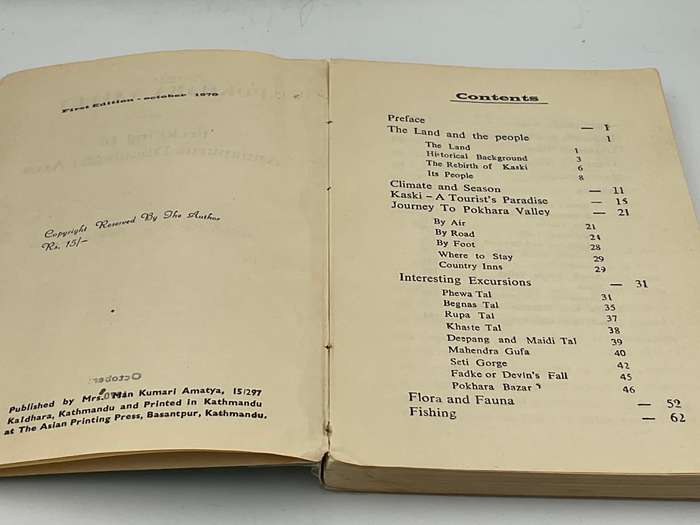 First Edition - october 1970
Copyright Reserved By The Author
Rs. 15/-
October
Published by Mrs. Man Kumari Amatya, 15/297
Kaldhara, Kathmandu and Printed in Kathmandu
at The Asian Printing Press, Basantpur, Kathmandu.
Contents
Preface — 1
The Land and the people 1
The Land 1
Historical Background 3
The Rebirth of Kaski 6
Its People 8
Climate and Season — 11
Kaski - A Tourist's Paradise — 15
Journey To Pokhara Valley — 21
By Air 21
By Road 24
By Foot 28
Where to Stay 29
Country Inns 29
Interesting Excursions — 31
Phewa Tal 31
Begnas Tal 35
Rupa Tal 37
Khaste Tal 38
Deepang and Maidi Tal 39
Mahendra Gufa 40
Seti Gorge 42
Fadke or Devin's Fall 45
Pokhara Bazar 46
Flora and Fauna — 52
Fishing — 62